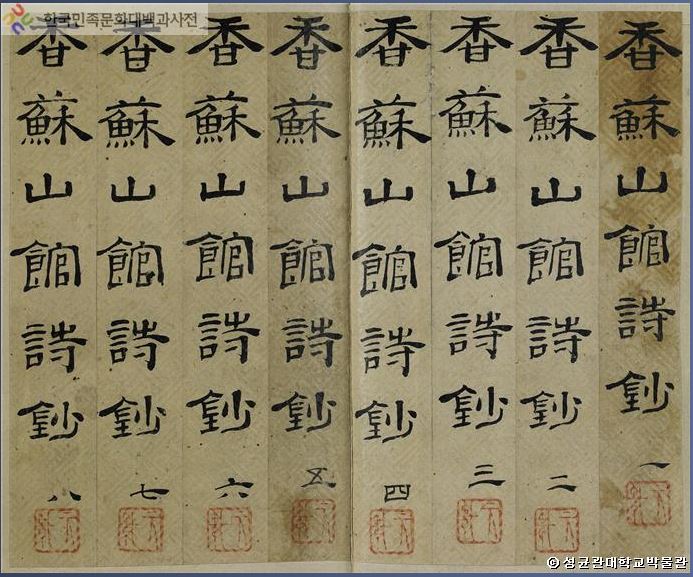 한국민족문화대백과사전
香蘇山館詩鈔 一
香蘇山館詩鈔 二
香蘇山館詩鈔 三
香蘇山館詩鈔 四
香蘇山館詩鈔 五
香蘇山館詩鈔 六
香蘇山館詩鈔 七
香蘇山館詩鈔 八
© 성균관대학교박물관